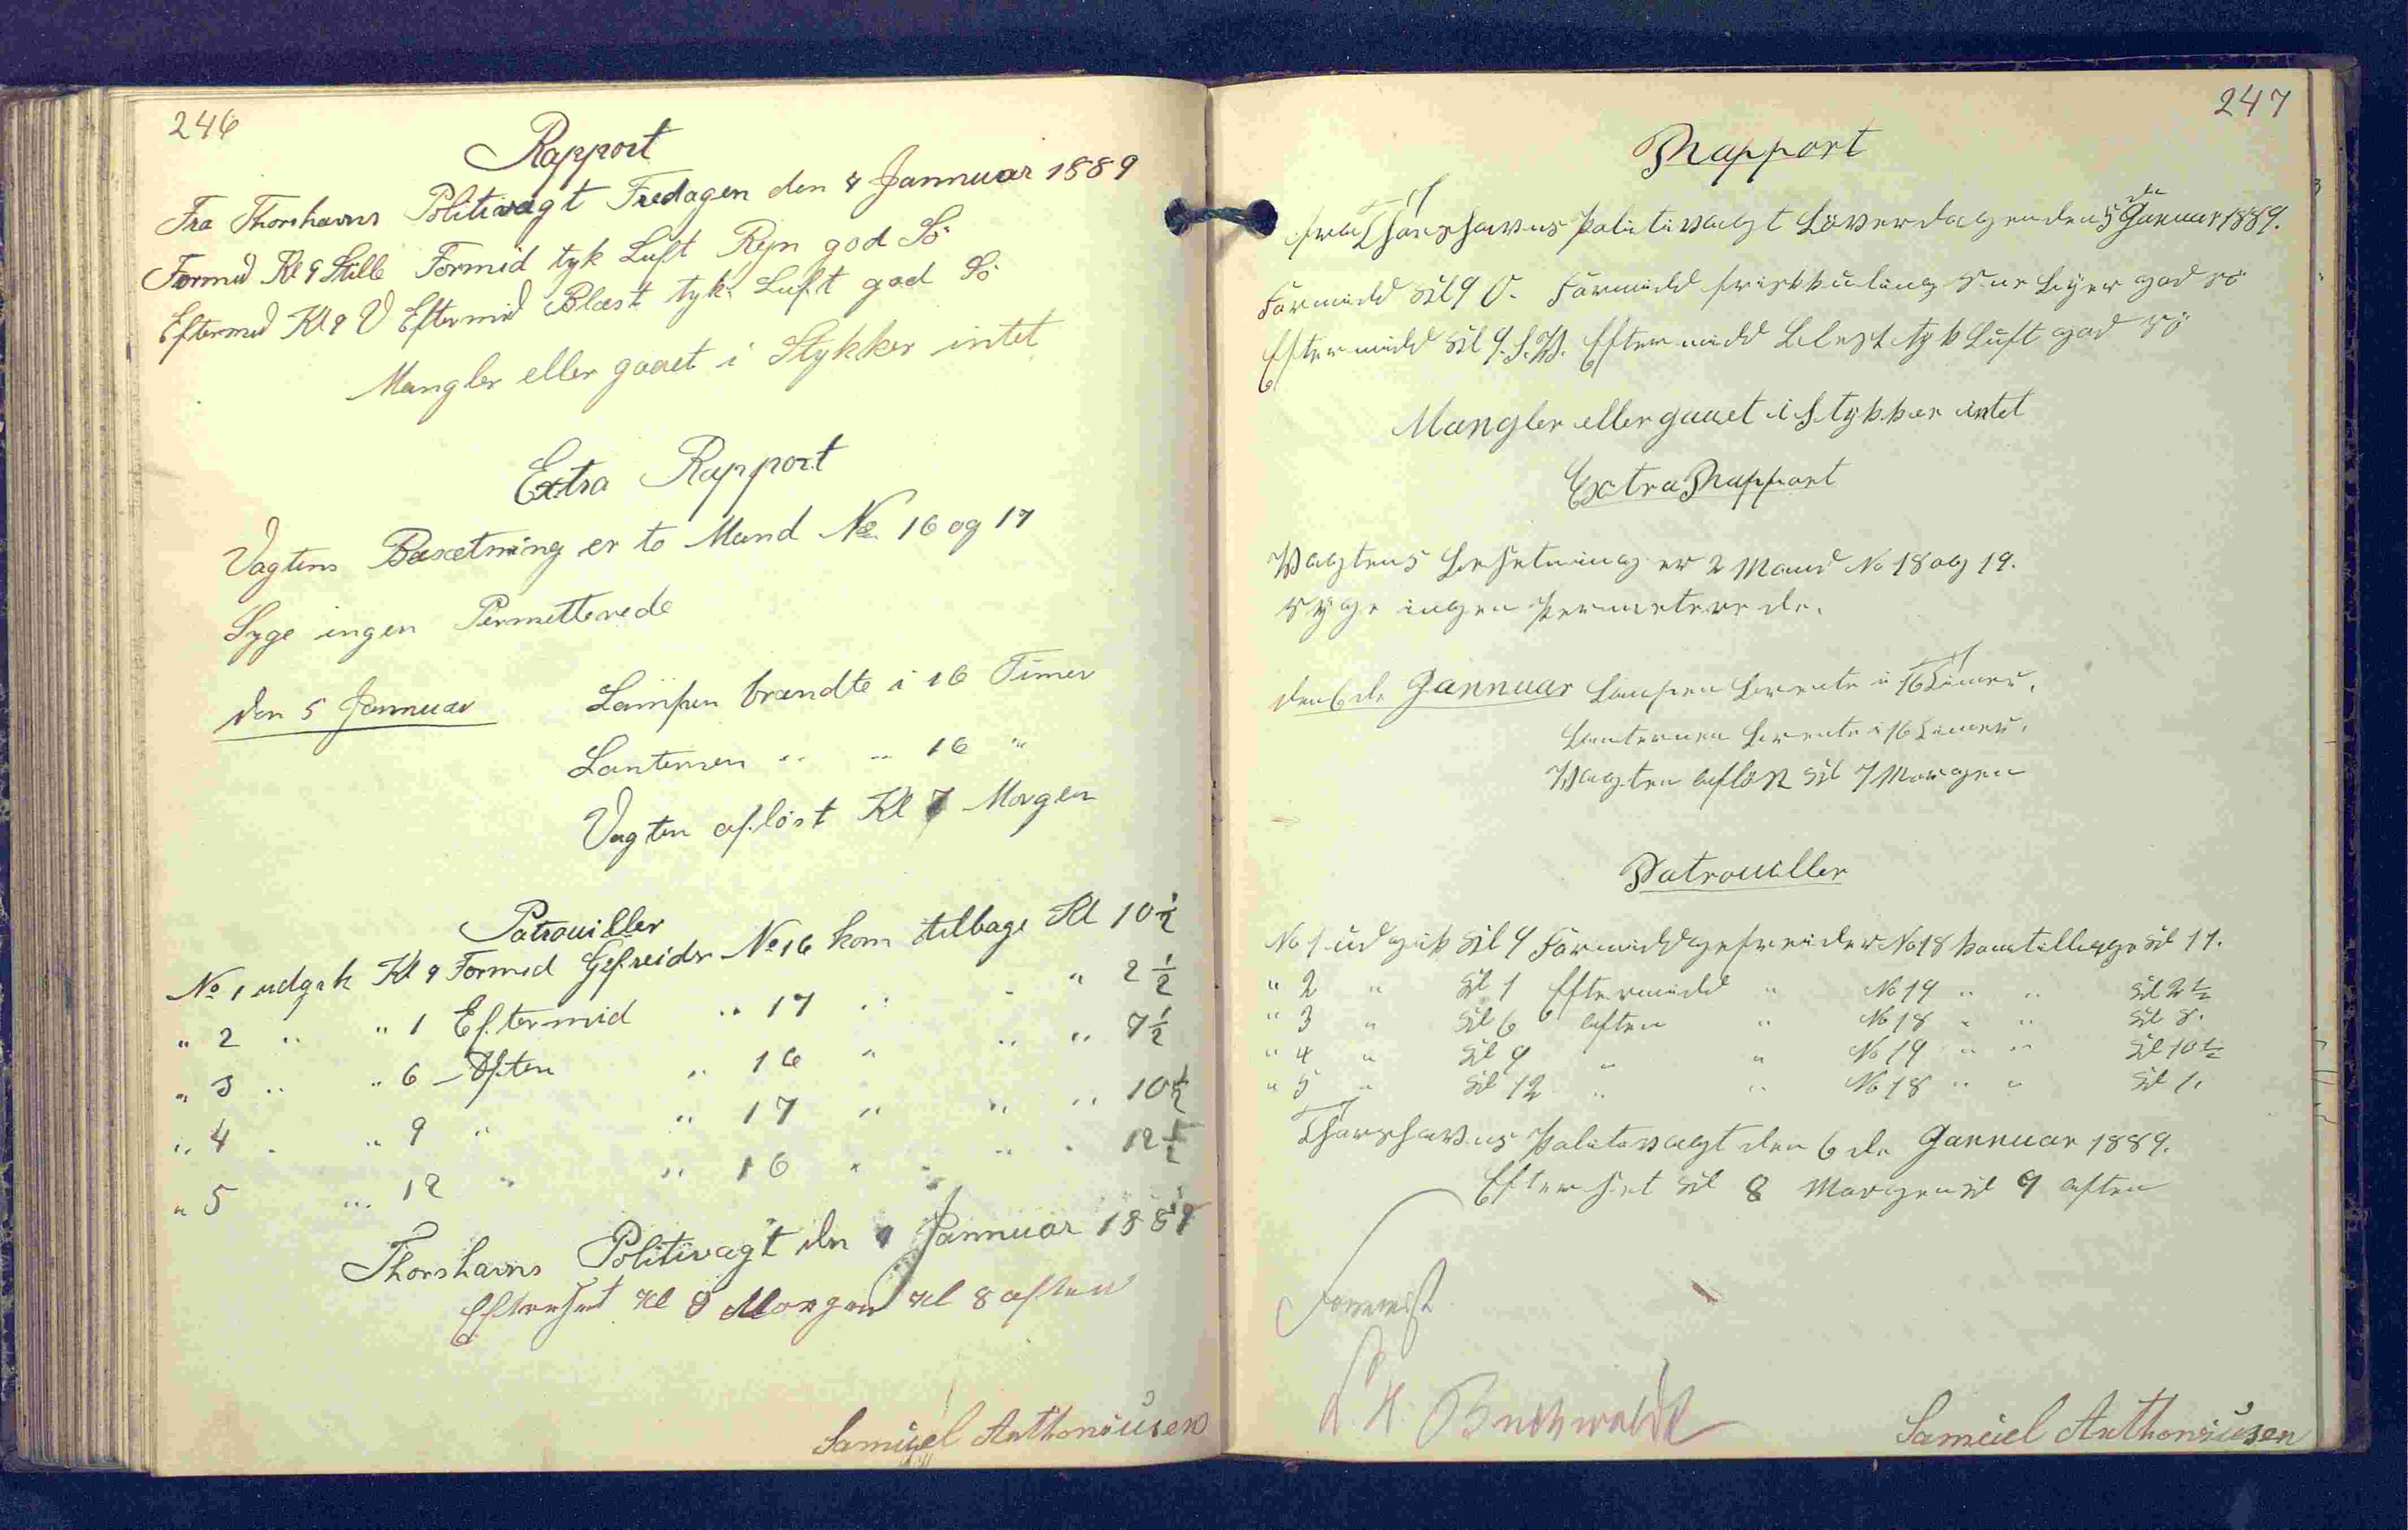 246
Rapport
Fra Thorshavns Politivagt Fredagen den 4 Jannuar 1889
Formid Kl 9 Stille Formid tyk Luft Rejn god Sö
Eftermid Kl 9 V Eftermid Blæst tyk Luft god Sö
Mangler eller gaaet i Stykker intet
Extra Rapport
Vagtens Basætning er to Mand No 16 og 17
Syge ingen Permitterede
den 5 Jannuar Lampen brændte i 16 Timer
Lanternen " " 16 "
Vagten aflöst Kl 7 Morgen
Patrouiller
No 1 udgik Kl 9 Formid Gefreider No 16 kom tilbage Kl 10 1/2
" 2 " " 1 Eftermid " 17 " " " 2 1/2
" 3 " " 6 Aften " 16 " " " 7 1/2
" 4 " " 9 " " 17 " " " 10 1/2
" 5 " 12 " " 16 " " " " 12 1/2
Thorshavns Politivagt den Jannuar 1889
Efterset Kl 8 Morgen Kl 8 aften
Samuel Anthoniusen
247
Rapport
fra Thorshavns Politivagt Löverdagen den 5 de Januar 1889.
Formidd Kl 9 O. Formidd frisk kuling god sö
Eftermidd Kl 9. S.V. Eftermidd Blest tyk Luft god sö
Mangler eller gaaet i Stykker intet
Extra Rapport
Vagtens besetning er 2 Mand No 18 og 19.
syge ingen Permeterede.
den 6 de Jannuar Lampen brente i 16 Timer.
Lanternen brente i 16 Timer.
Vagten aflöst Kl 7 Morgen
Patrouiller
No 1 udgik Kl 9 Formidd gefreider No 18 kom tilbage Kl 11.
" 2 " Kl 1 Eftermidd " No 19 " " Kl 2 1/2
" 3 " Kl 6 aften " No 18 " " Kl 8.
" 4 " Kl 9 " " No 19 " " Kl 10 1/2
" 5 " Kl 12 " " No 18 " " Kl 1.
Thorshavns Politivagt den 6 de Jannuar 1889.
Efterset Kl 8 Morgen Kl 9 aften
Buchwaldt
Samuel Anthoniusen